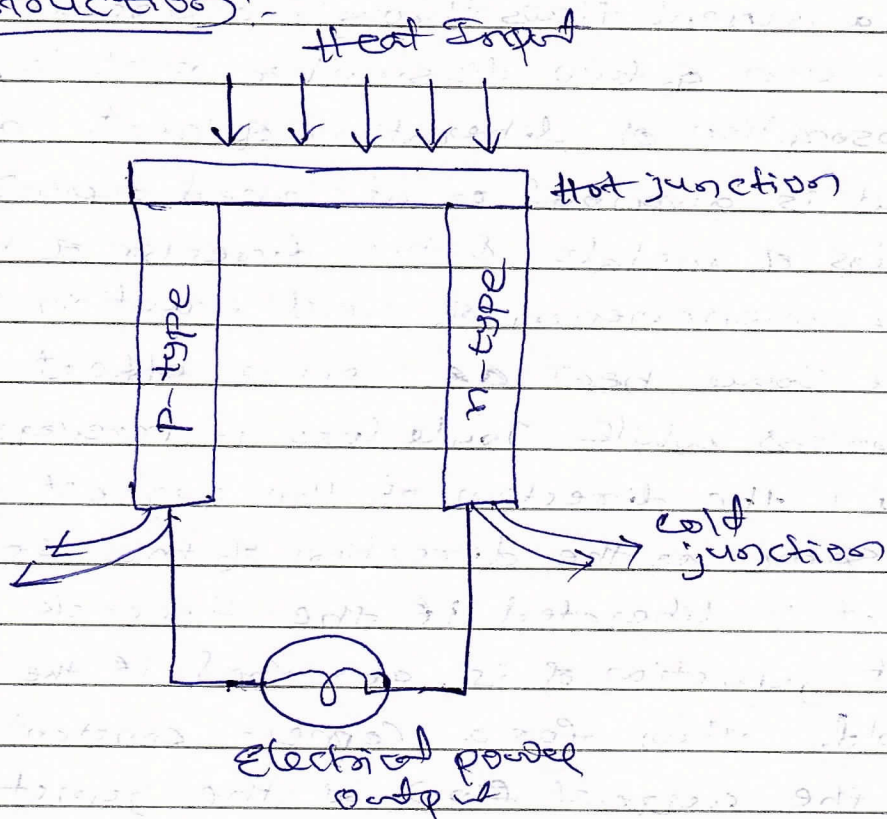 Heat Input
Hot junction
P-type
n-type
cold
junction
Electrical power
output